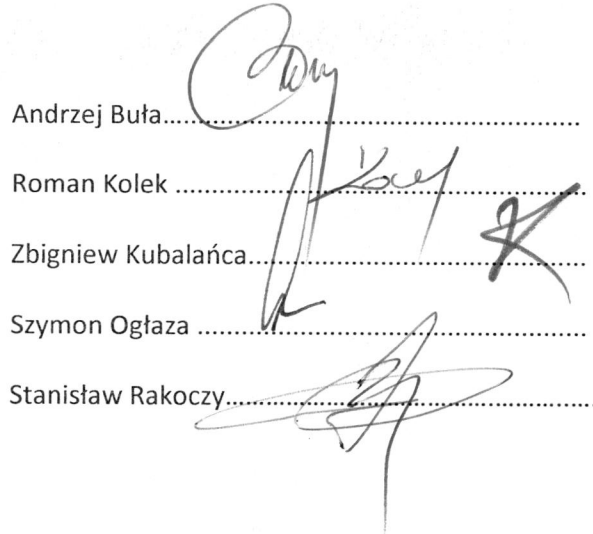 Andrzej Buła......................................................
Roman Kolek .....................................................
Zbigniew Kubalańca...........................................
Szymon Ogłaza ..................................................
Stanisław Rakoczy..............................................